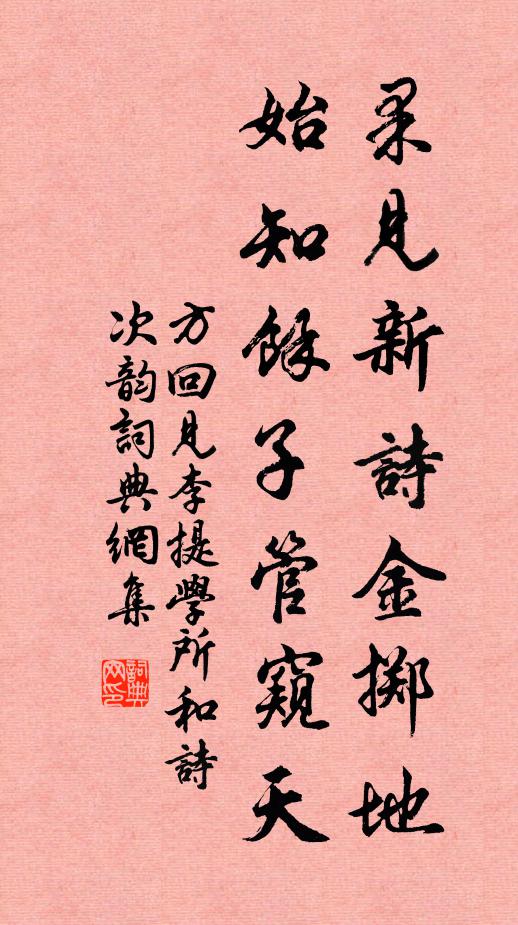 果見新詩金擲地
始知餘子管窺天
方回見李提學所和詩
次韵詞典網集
詞典
网印